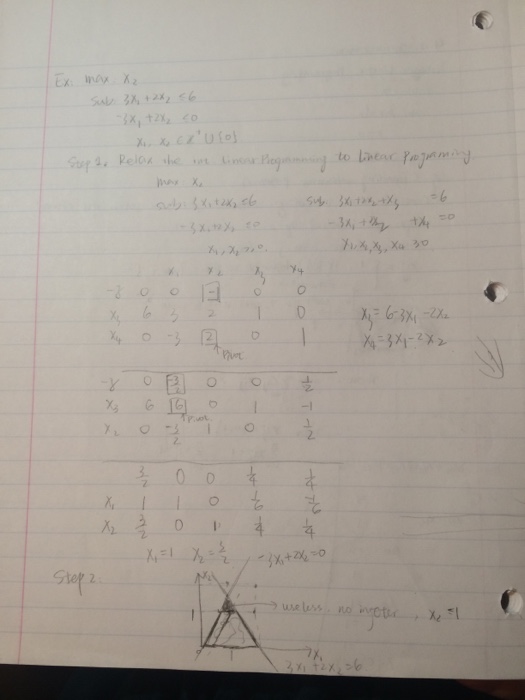 Ex. max x₂
sub: 3x₁+2x₂ ≤6
-3x₁+2x₂ ≤0
x₁, x₂ ∈ Z⁺∪{0}
Step 1. Relax the int Linear Programming to Linear Programing
max x₂
sub: 3x₁+2x₂≤6 sub 3x₁+2x₂+x₃ =6
-3x₁+2x₂ ≤0 -3x₁+2x₂ +x₄ =0
x₁,x₂≥0. x₁,x₂,x₃,x₄ ≥0
x₁ x₂ x₃ x₄
-z 0 0 -1 0 0
x₃ 6 3 2 1 0 x₃=6-3x₁-2x₂
x₄ 0 -3 2 0 1 x₄=3x₁-2x₂
-z 0 -3/2 0 0 1/2
x₃ 6 6 0 1 -1
x₂ 0 -3/2 1 0 1/2
3/2 0 0 1/4 1/4
x₁ 1 1 0 1/6 -1/6
x₂ 3/2 0 1 1/4 1/4
x₁=1 x₂=3/2 -3x₁+2x₂=0
Step 2. x₂
1 → useless, no integer, x₂=1
0 1 x₁
3x₁+2x₂=6